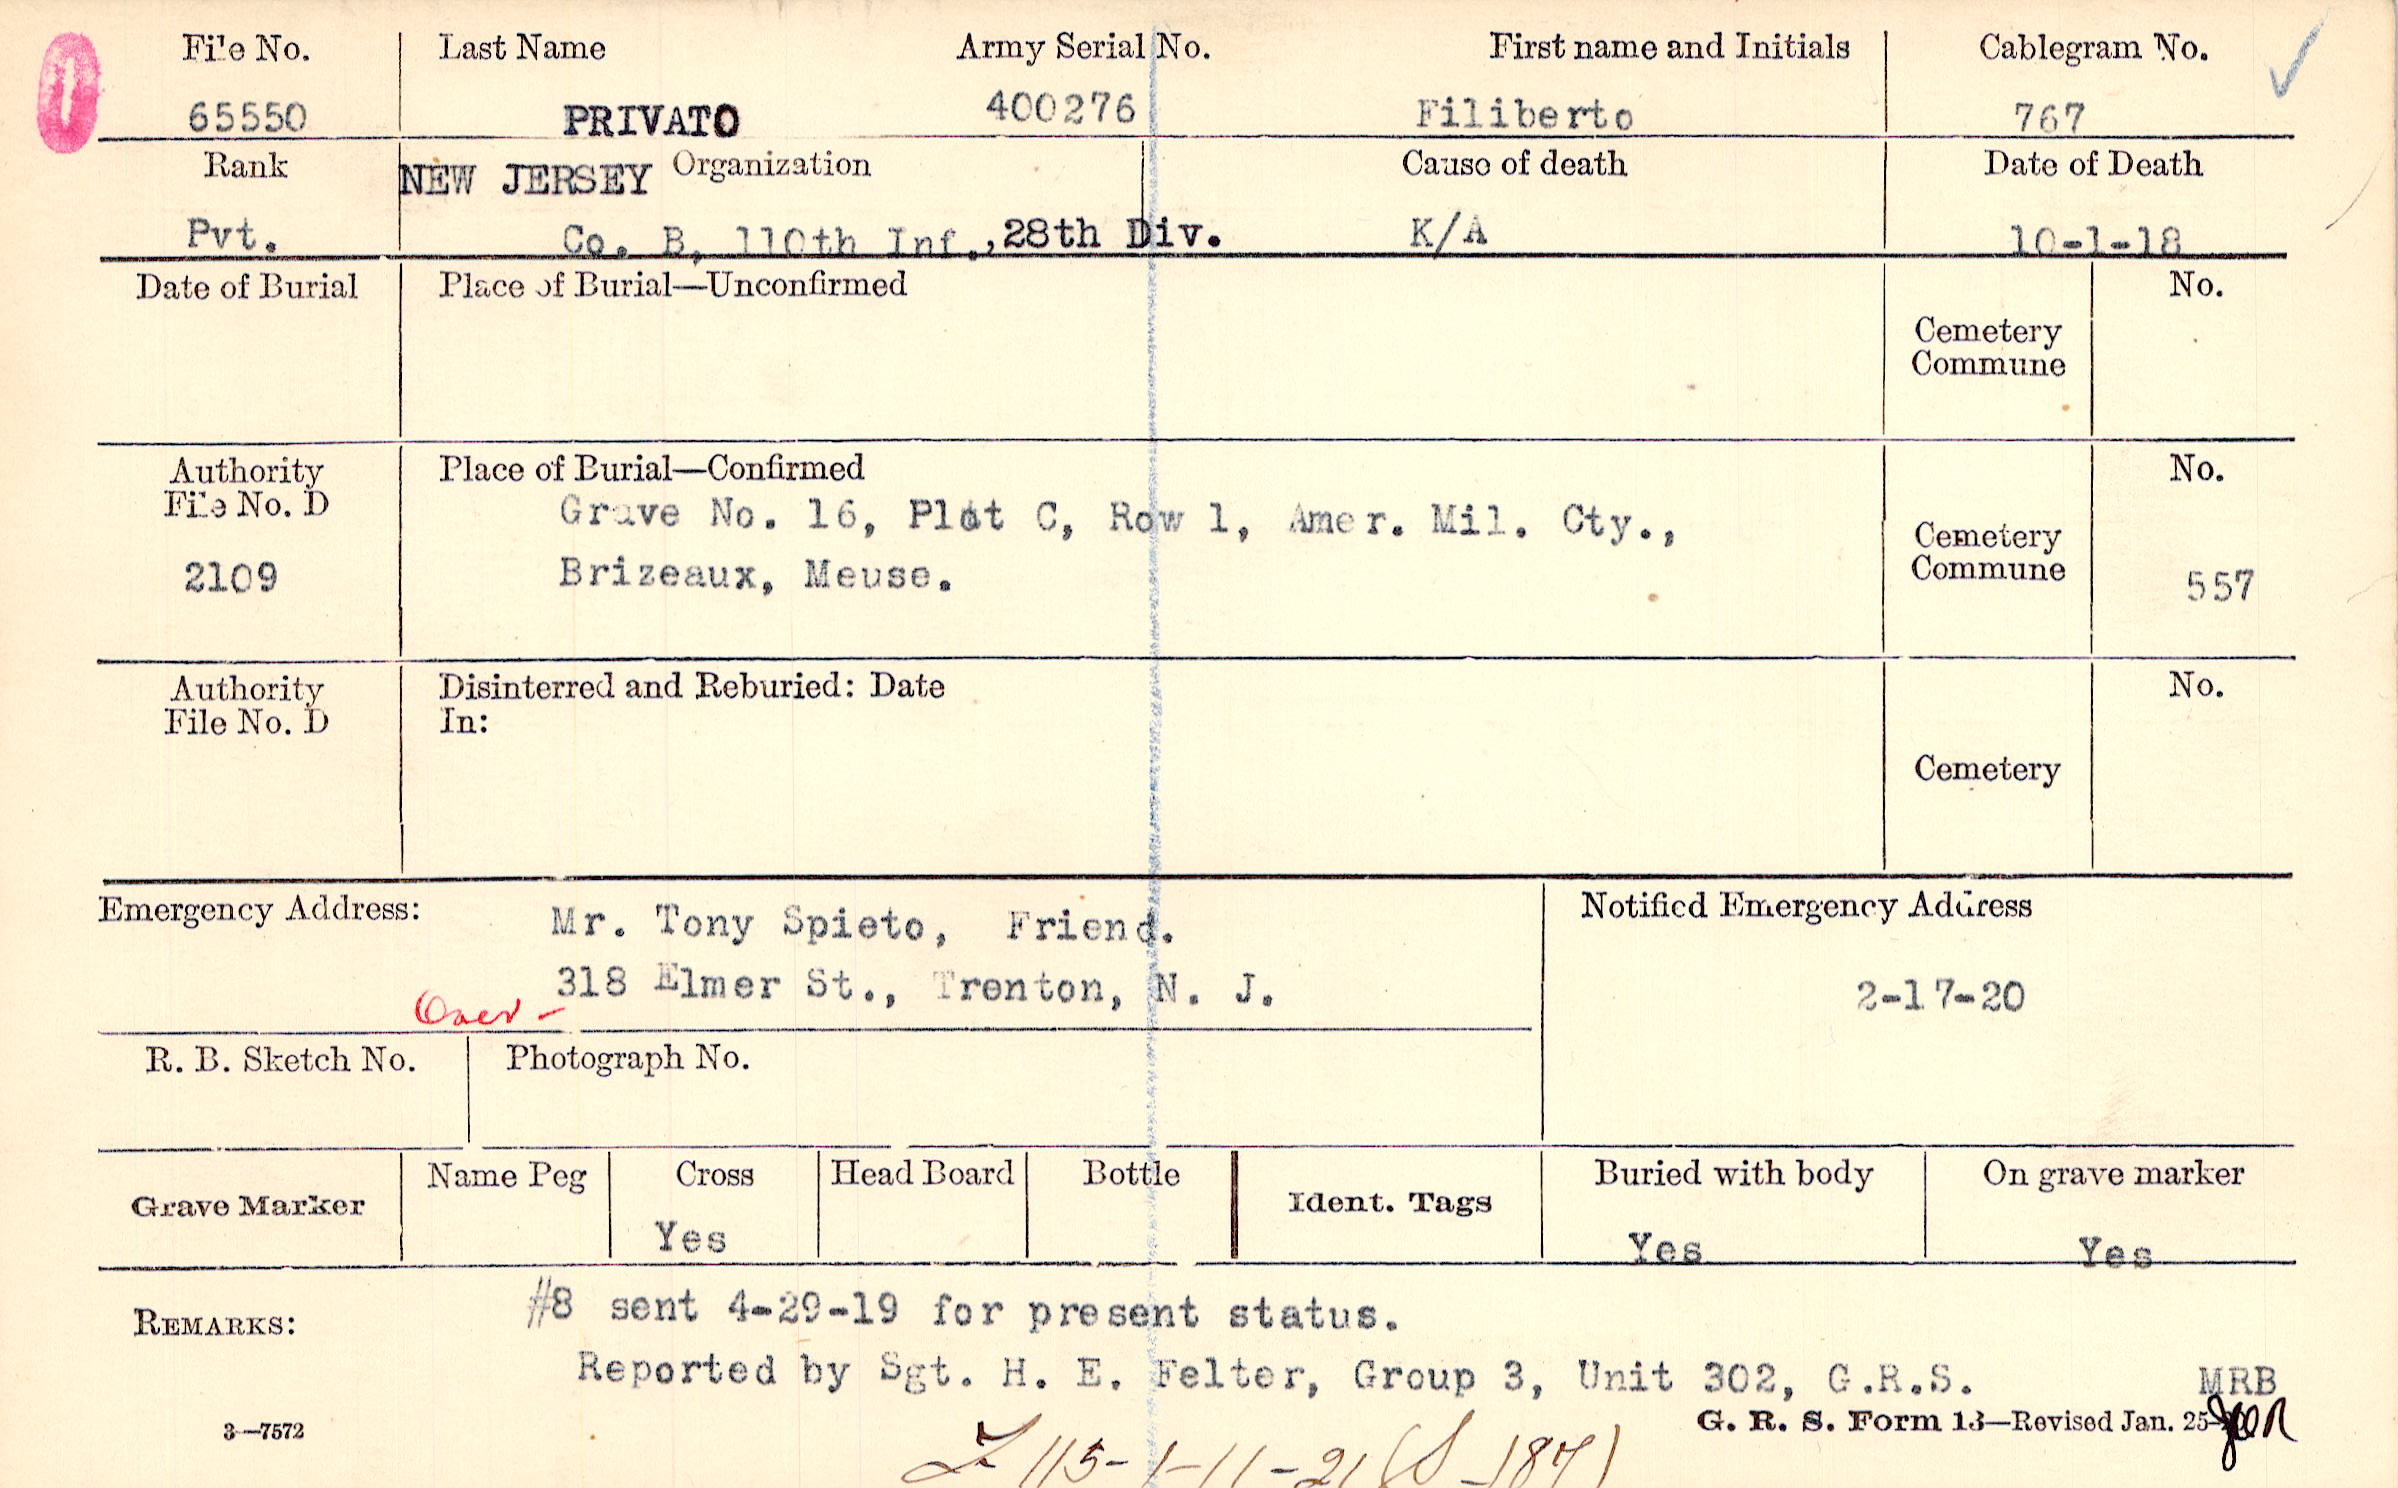 File No. Last Name Army Serial No. First name and Initials Cablegram No.
65550 PRIVATO 400276 Filiberto 767
Rank NEW JERSEY Organization Cause of death Date of Death
Pvt. Co. B, 110th Inf., 28th Div. K/A 10-1-18
Date of Burial Place of Burial—Unconfirmed No.
Cemetery
Commune
Authority Place of Burial—Confirmed No.
File No. D Grave No. 16, Plot C, Row 1, Amer. Mil. Cty.,
Cemetery
2109 Brizeaux, Meuse. Commune 557
Authority Disinterred and Reburied: Date No.
File No. D In:
Cemetery
Emergency Address: Mr. Tony Spieto, Friend. Notified Emergency Address
318 Elmer St., Trenton, N. J. 2-17-20
Over -
R. B. Sketch No. Photograph No.
Name Peg Cross Head Board Bottle Buried with body On grave marker
Grave Marker Ident. Tags
Yes Yes Yes
#8 sent 4-29-19 for present status.
REMARKS:
Reported by Sgt. H. E. Felter, Group 3, Unit 302, G.R.S. MRB
3—7572 G. R. S. Form 13—Revised Jan. 25-
115-1-11-21 (S-187)